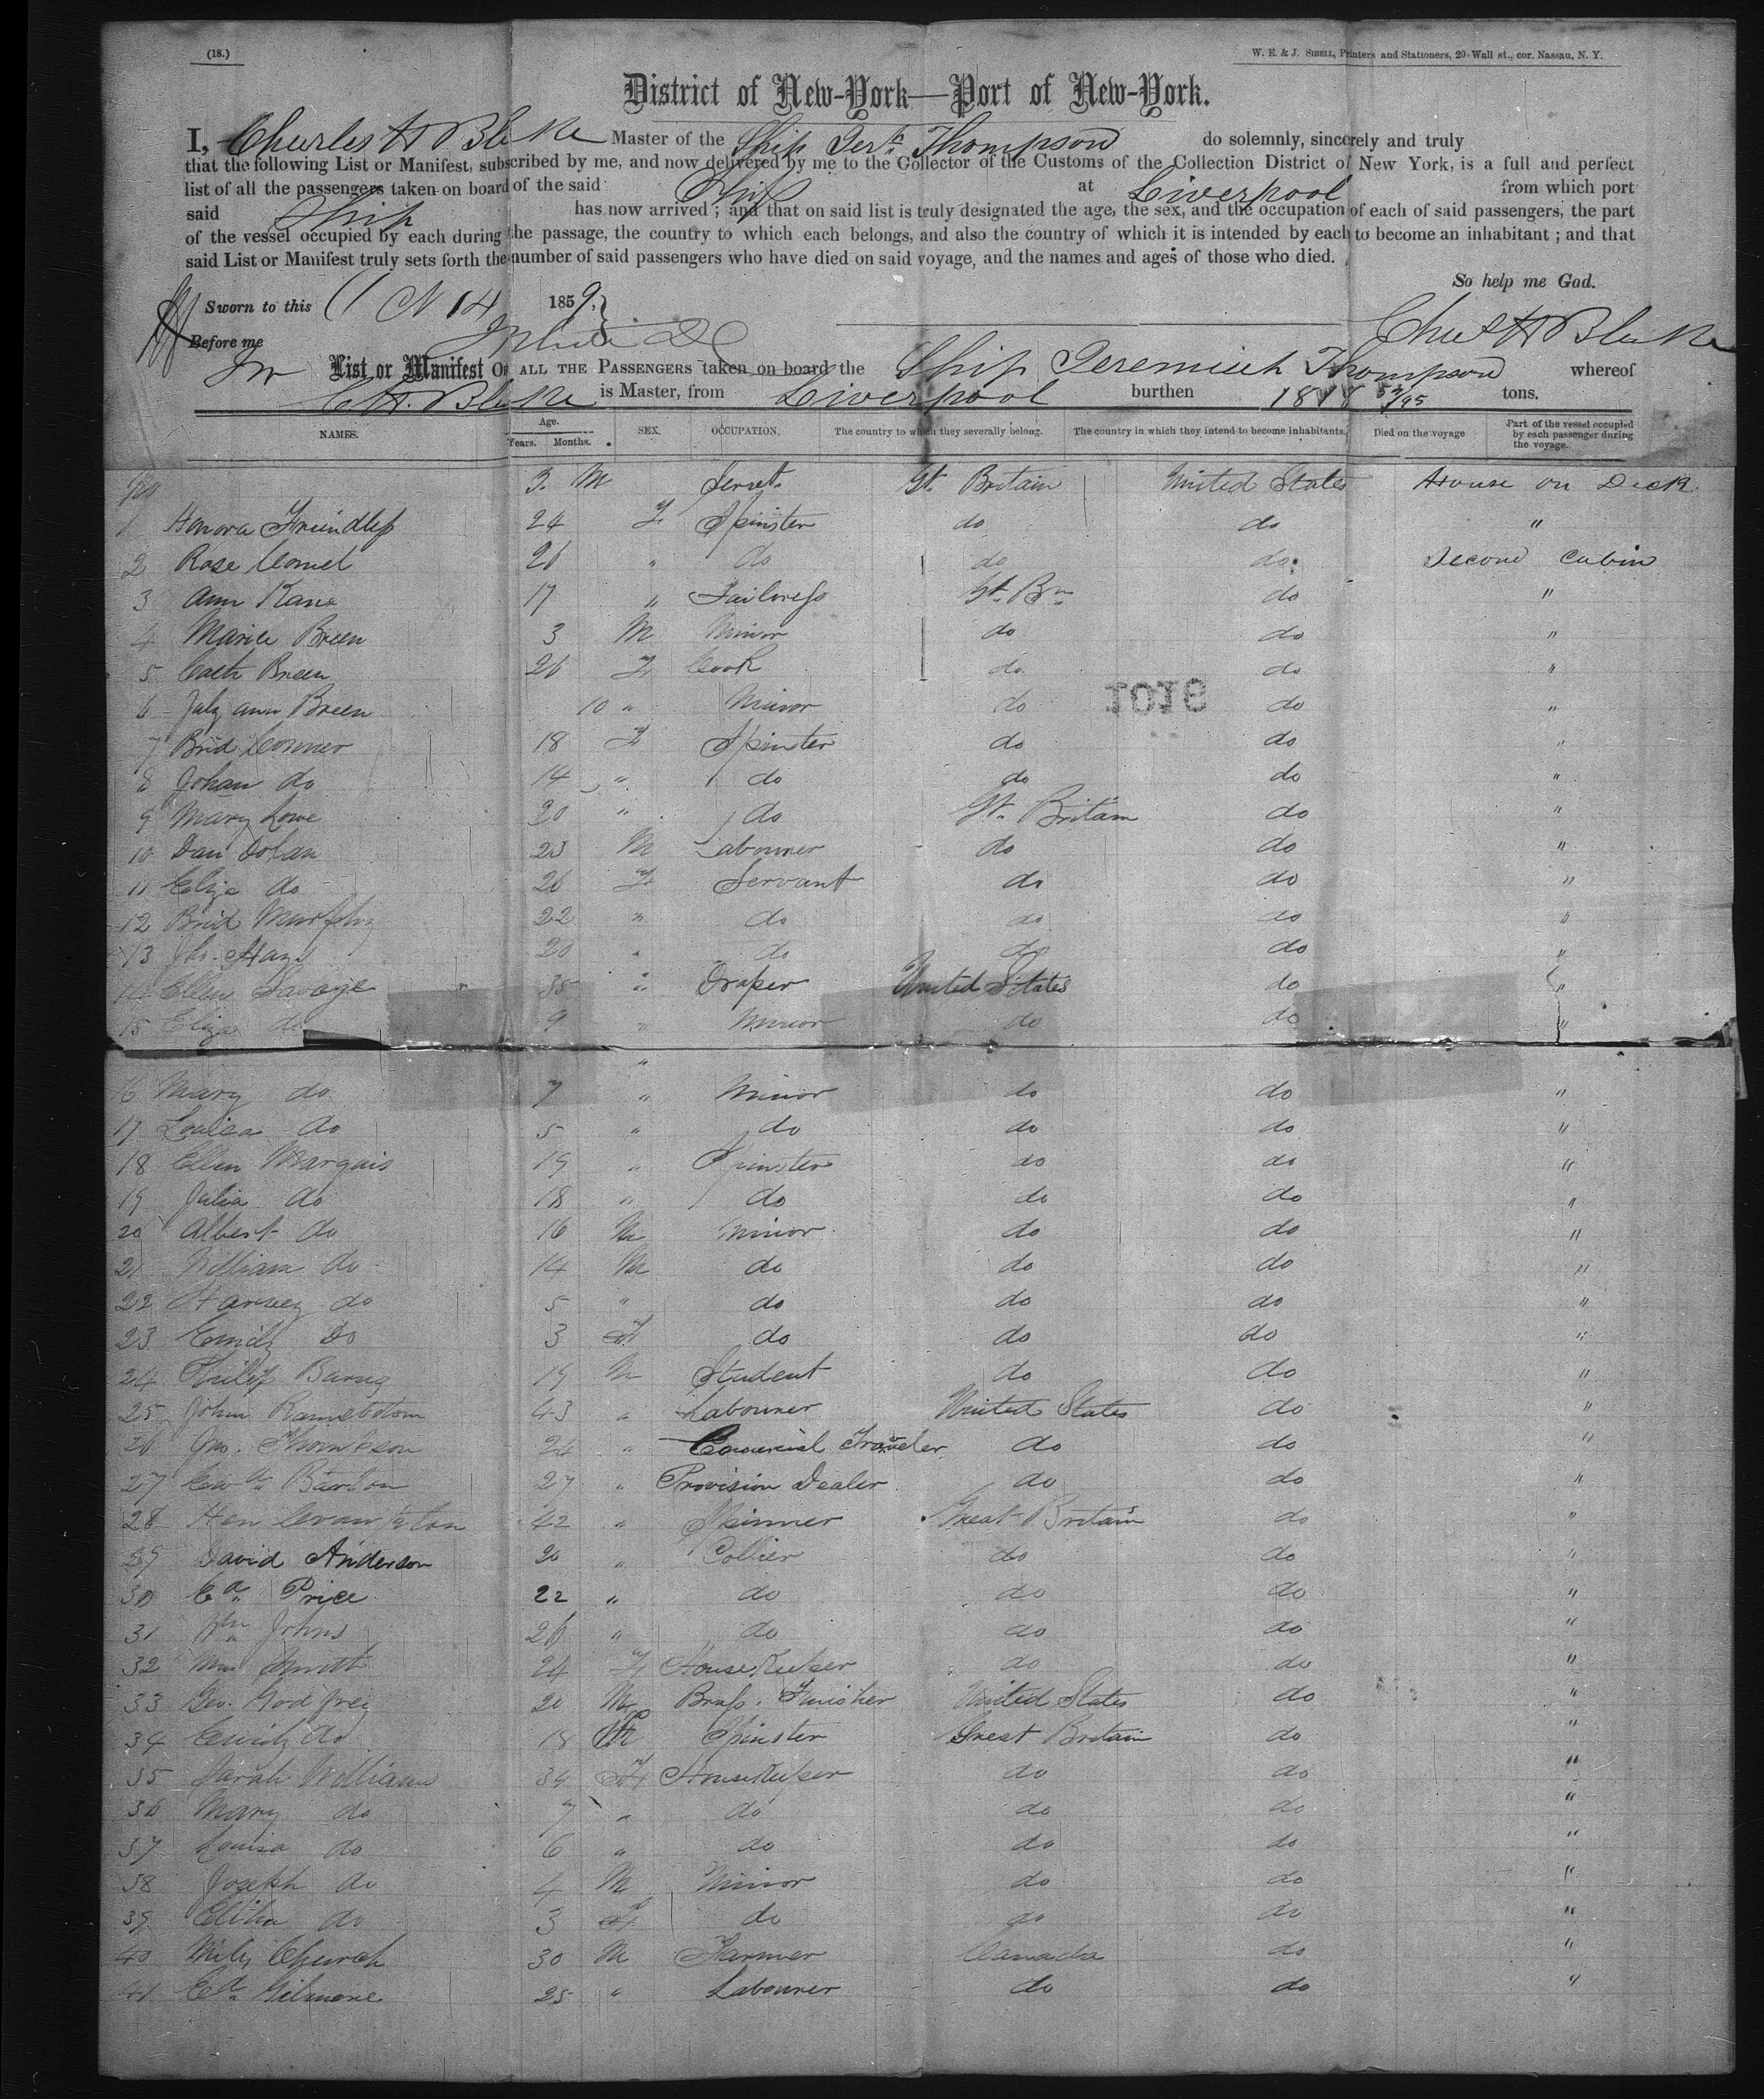 (18.)
W. E. & J. SIBELL, Printers and Stationers, 20 Wall st., cor. Nassau, N. Y.
District of New-York—Port of New-York.
I, Charles H Blake Master of the Ship Jerh. Thompson do solemnly, sincerely and truly
that the following List or Manifest, subscribed by me, and now delivered by me to the Collector of the Customs of the Collection District of New York, is a full and perfect
list of all the passengers taken on board of the said Ship at Liverpool from which port
said Ship has now arrived; and that on said list is truly designated the age, the sex, and the occupation of each of said passengers, the part
of the vessel occupied by each during the passage, the country to which each belongs, and also the country of which it is intended by each to become an inhabitant; and that
said List or Manifest truly sets forth the number of said passengers who have died on said voyage, and the names and ages of those who died.
So help me God.
Sworn to this 14 1859.
Chas H Blake
Before me
List or Manifest OF ALL THE PASSENGERS taken on board the Ship Jeremiah Thompson whereof
C H. Blake is Master, from Liverpool burthen 1818 tons.
NAMES. Age. Years. Months. SEX. OCCUPATION. The country to which they severally belong. The country in which they intend to become inhabitants. Died on the voyage Part of the vessel occupied by each passenger during the voyage.
No 3. M Servt. Gt. Britain United States House on Deck
1 Honora 24 F Spinster do do "
2 Rose 26 " do do do Second Cabin
3 Ann Kane 17 " Tailoress Gt. Bn. do "
4 Breen 3 M Minor do do "
5 Cath Breen 26 F Cook do do "
6 July ann Breen 10 " Minor do do "
1019
7 Brid Conner 18 F Spinster do do "
8 Johan do 14 " do do do "
9 Mary Lowe 20 " do Gt. Britain do "
10 Dan Dolan 23 M Labourer do do "
11 Eliza do 26 F Servant do do "
12 Brid Murphy 22 " do do do "
13 20 " do do do "
14 Ellen Savage 35 " Draper United States do "
15 Eliza do 9 " Minor do do "
16 Mary do 7 " Minor do do "
17 Louisa do 5 " do do do "
18 Ellen Marquis 19 " Spinster do do "
19 Julia do 18 " do do do "
20 Albert do 16 M Minor do do "
21 William do 14 M do do do "
22 Harvey do 5 " do do do "
23 Emily Do 3 F do do do "
24 Philip 19 M Student do do "
25 John Ramsbotom 43 " Labourer United States do "
26 Jno. Thompson 24 " Commercial Traveler do do "
27 Edwd. Barton 27 " Provision Dealer do do "
28 Hen 42 " Spinner Great Britain do "
29 David Anderson 20 " Collier do do "
30 Ed. Price 22 " do do do "
31 Wm Johns 26 " do do do "
32 Smith 24 F Housekeeper do do "
33 Geo. Godfrey 20 M Brass. Finisher United States do "
34 Emily do 18 F Spinster Great Britain do "
35 Sarah Williams 34 F Housekeeper do do "
36 Mary do 7 " do do do "
37 Louisa do 6 " do do do "
38 Joseph do 4 M Minor do do "
39 do 3 F do do do "
40 Church 30 M Farmer Canada do "
41 Ed. Gilmore 25 " Labourer do do "